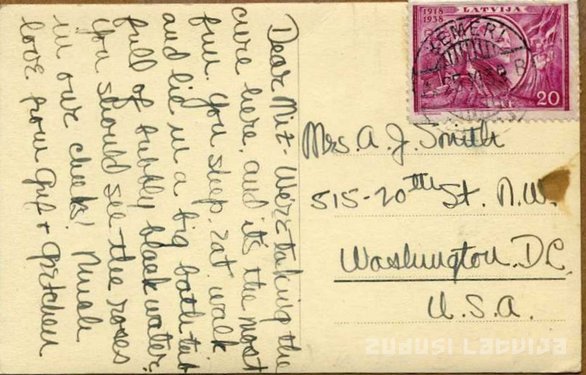 Dear Miz. We're taking the
cure here, and it's the most
fun. You sleep, eat, walk
and lid in a big bath tub
full of bubbly black water.
You should see the roses
in our cheeks! Much
love from Gus + Gretchen
LATVIJA
1918
1938
ĶEMERI
20
Mrs A. J. Smith
515-20th St. N.W.
Washington D.C.
U.S.A.
ZUDUSI LATVIJA